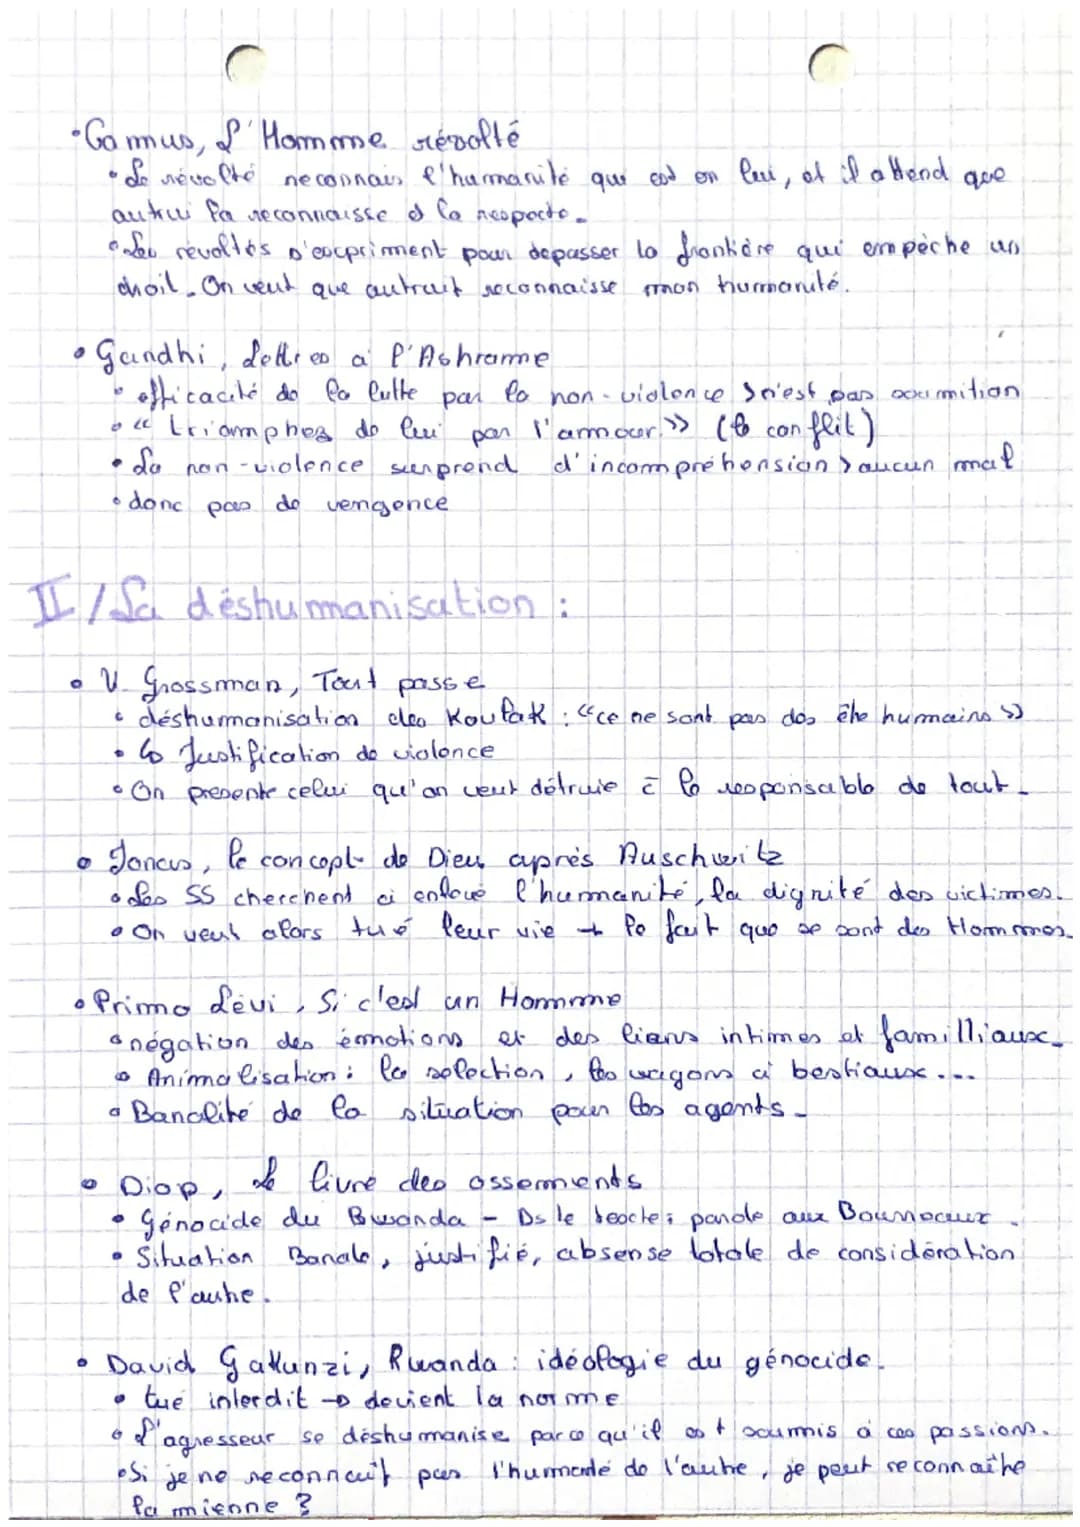 • Camus, L'Homme révolté
• Le révolté reconnais l'humanité qui est en lui, et il attend que
autrui la reconnaisse et la respecte.
• Les révoltés s'expriment pour depasser la frontière qui empèche un
droit. On veut que autruit reconnaisse mon humanité.
• Gandhi, Lettres à l'Ashrame
• efficacité de la lutte par la non-violence > n'est pas soumition
• « triomphez de lui par l'amour. » (le conflit)
• La non-violence surprend d'incompréhension > aucun mal
• donc pas de vengence
II / La déshumanisation :
• V. Grossman, Tout passe
• déshumanisation des Koulak : « ce ne sont pas des être humains »
• ↳ Justification de violence
• On presente celui qu'on veut détruie c̄ le responsable de tout.
• Jonas, le concept de Dieu après Auschwitz
• Les SS cherchent à enlevé l'humanité, la dignité des victimes.
• On veut alors tué leur vie + le fait que se sont des Hommes.
• Primo Lévi, Si c'est un Homme
• négation des émotions et des liens intimes et familliaux.
• Animalisation : la selection, les wagons à bestiaux....
• Banalité de la situation pour les agents.
• Diop, Le livre des ossements
• Génocide du Rwanda - Ds le texte : parole aux Bourreaux.
• Situation Banale, justifié, absense totale de considération
de l'autre.
• David Gakunzi, Rwanda : idéologie du génocide.
• tué interdit → devient la norme
• L'agresseur se déshumanise parce qu'il est soumis à ces passions.
• Si je ne reconnait pas l'humanité de l'autre, je peut reconnaître
la mienne ?